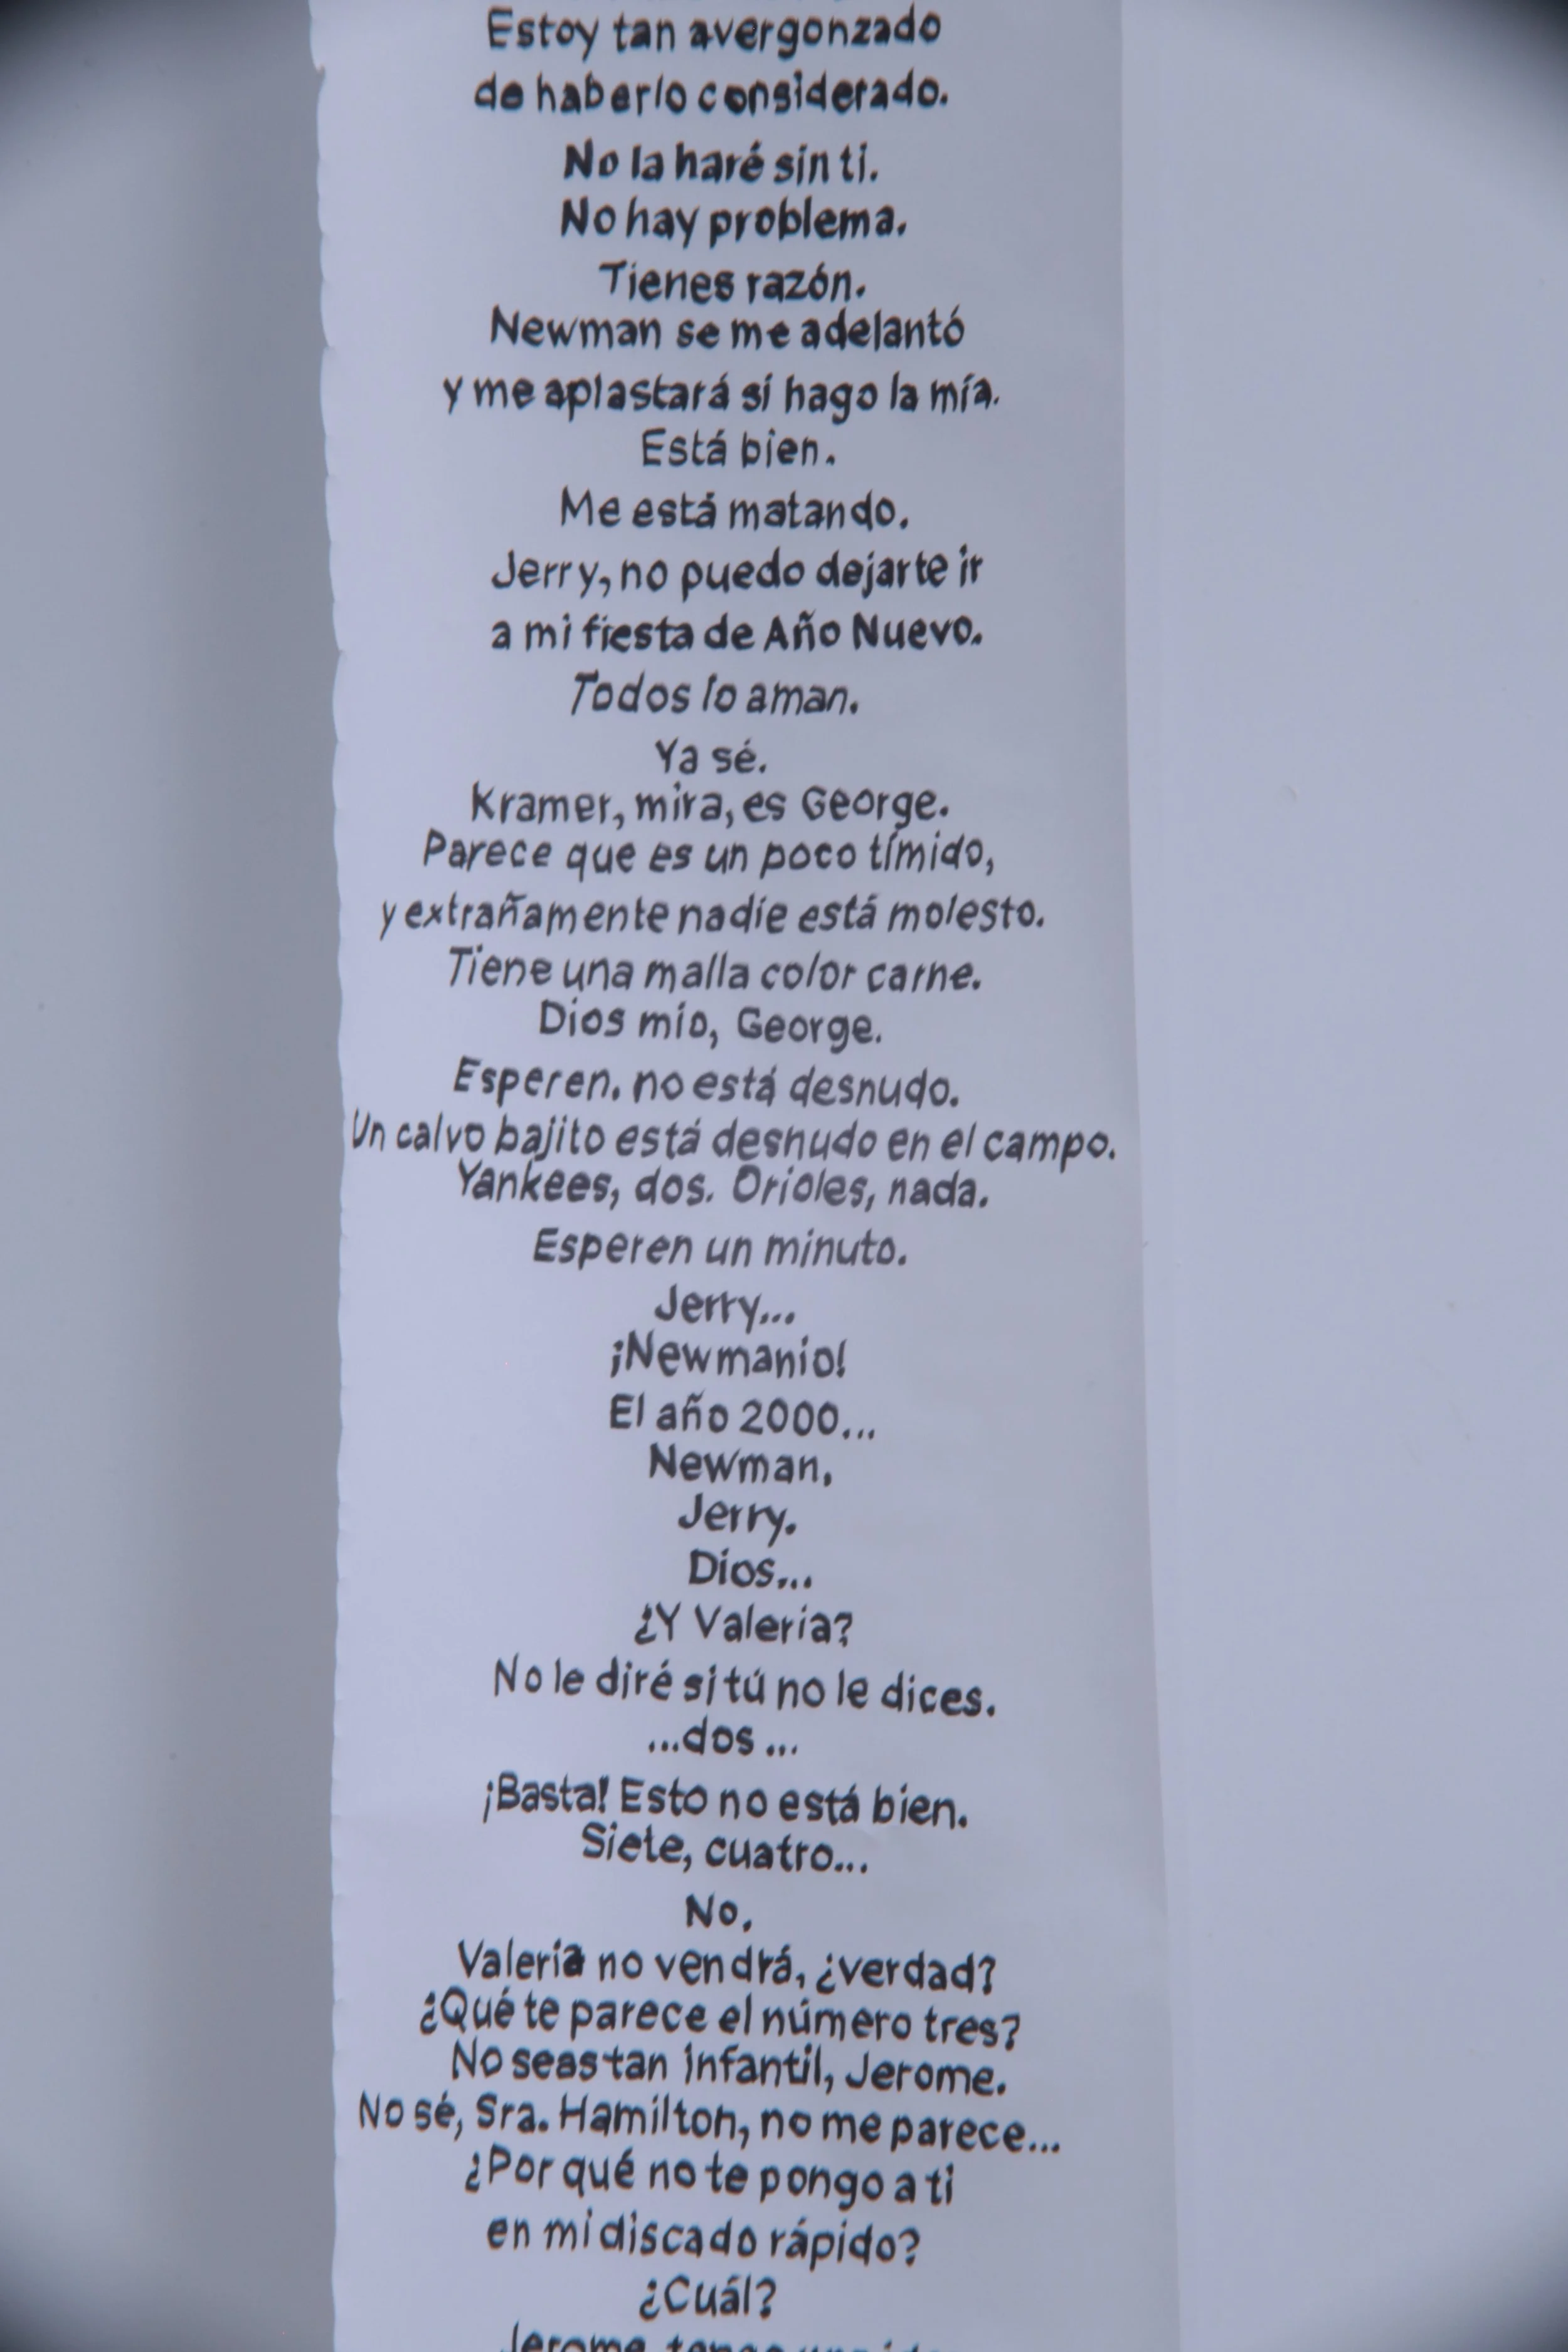 Estoy tan avergonzado
de haberlo considerado.
No la haré sin ti.
No hay problema.
Tienes razón.
Newman se me adelantó
y me aplastará si hago la mía.
Está bien.
Me está matando.
Jerry, no puedo dejarte ir
a mi fiesta de Año Nuevo.
Todos lo aman.
Ya sé.
Kramer, mira, es George.
Parece que es un poco tímido,
y extrañamente nadie está molesto.
Tiene una malla color carne.
Dios mío, George.
Esperen. no está desnudo.
Un calvo bajito está desnudo en el campo.
Yankees, dos. Orioles, nada.
Esperen un minuto.
Jerry...
¡Newmanio!
El año 2000...
Newman.
Jerry.
Dios...
¿Y Valeria?
No le diré si tú no le dices.
...dos ...
¡Basta! Esto no está bien.
Siete, cuatro...
No.
Valeria no vendrá, ¿verdad?
¿Qué te parece el número tres?
No seas tan infantil, Jerome.
No sé, Sra. Hamilton, no me parece...
¿Por qué no te pongo a ti
en mi discado rápido?
¿Cuál?
Jerome